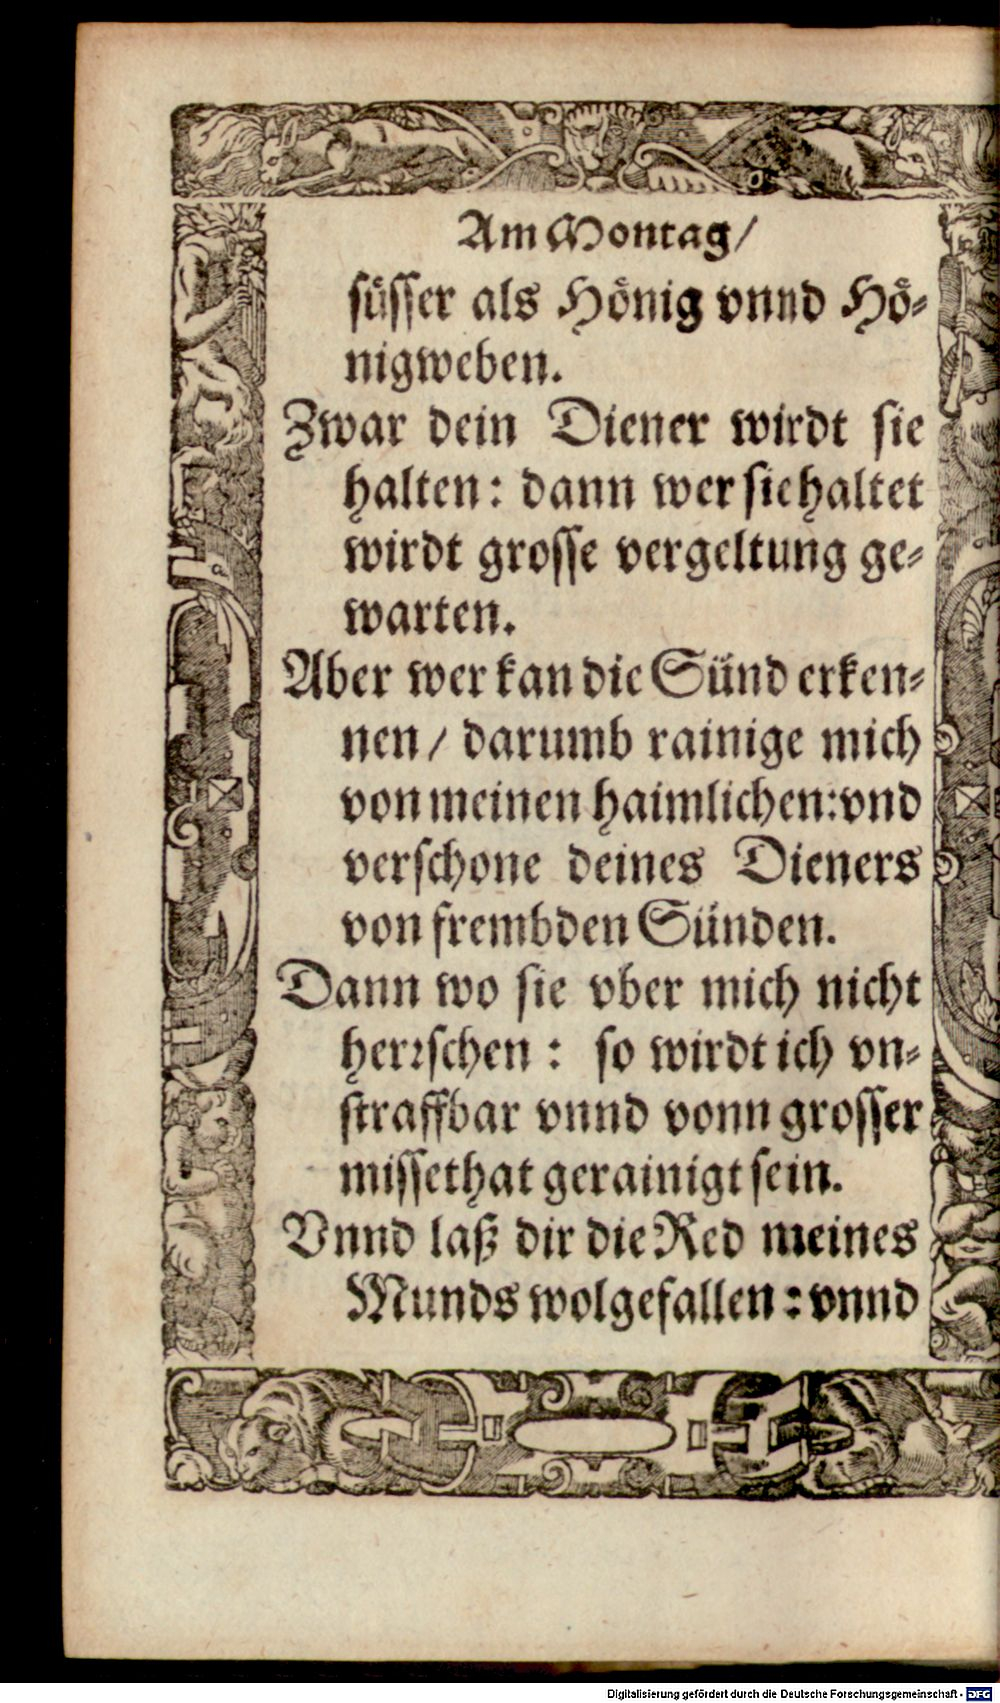 Am Montag/
süsser als Hönig vnnd Hö-
nigweben.
Zwar dein Diener wirdt sie
halten: dann wer sie haltet
wirdt grosse vergeltung ge-
warten.
Aber wer kan die Sünd erken-
nen/ darumb rainige mich
von meinen haimlichen: vnd
verschone deines Dieners
von frembden Sünden.
Dann wo sie vber mich nicht
herrschen: so wirdt ich vn-
straffbar vnnd vonn grosser
missethat gerainigt sein.
Vnnd laß dir die Red meines
Munds wolgefallen: vnnd
Digitalisierung gefördert durch die Deutsche Forschungsgemeinschaft - DFG